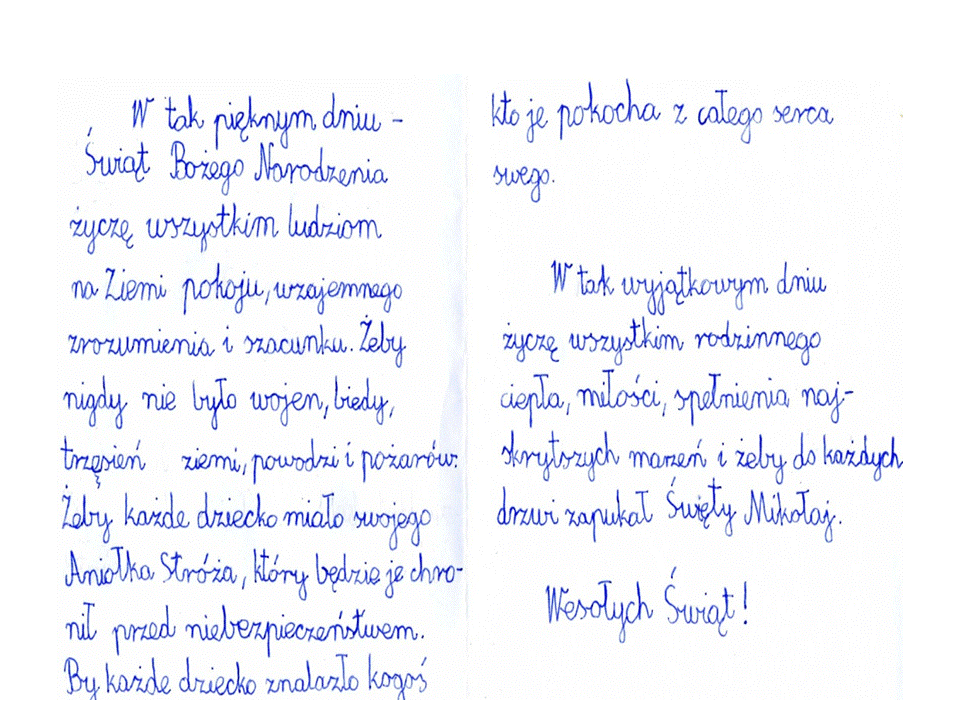 W tak pięknym dniu -
Świąt Bożego Narodzenia
życzę wszystkim ludziom
na Ziemi pokoju, wzajemnego
zrozumienia i szacunku. Żeby
nigdy nie było wojen, biedy,
trzęsień ziemi, powodzi i pożarów.
Żeby każde dziecko miało swojego
Aniołka Stróża, który będzie je chro-
nił przed niebezpieczeństwem.
By każde dziecko znalazło kogoś
kto je pokocha z całego serca
swego.
W tak wyjątkowym dniu
życzę wszystkim rodzinnego
ciepła, miłości, spełnienia naj-
skrytszych marzeń i żeby do każdych
drzwi zapukał Święty Mikołaj.
Wesołych Świąt!